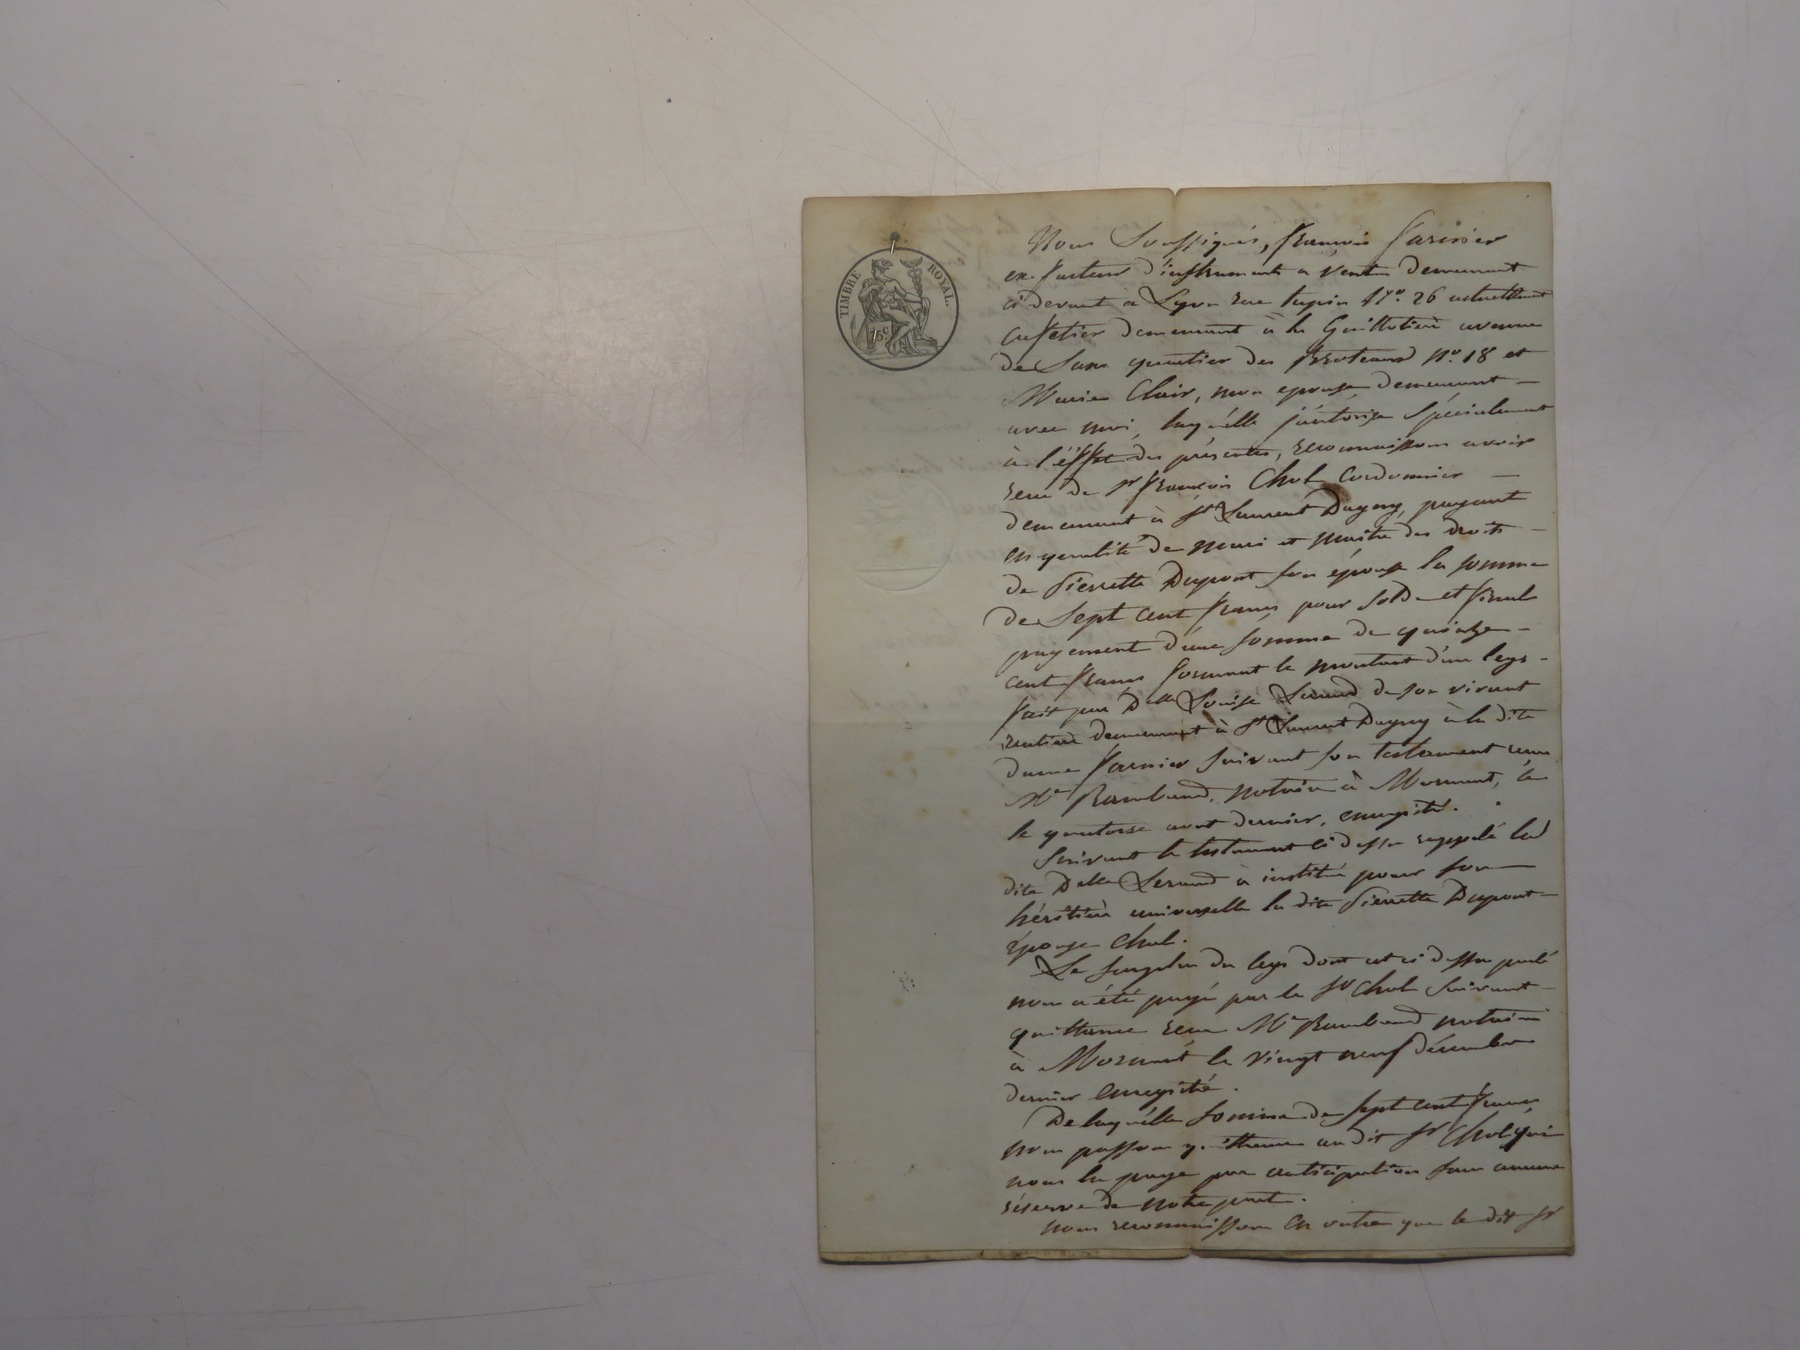 TIMBRE ROYAL.
Nous Soussignés, François farinier
ex facteur d'instruments a vents demeurant
ci devant a Lyon rue tupin N°. 26 actuellement
cafetier demeurant à la Guillotière avenue
de Saxe quartier des Broteaux N°. 18 et
Marie Clair, mon epouse demeurant
avec moi, laquelle j'autorise spécialement
à l'éffet des présentes, reconnaissons avoir
recu de Sr françois Chol Cordonnier
demeurant à St Laurent Dagny, payant
en qualité de mari et maitre des droits
de Pierrette Dupont son épouse la somme
de Sept cent francs pour solde et final
payement d'une somme de quinze
cent francs formant le montant d'un legs
fait par Delle Louise de son vivant
rentière demeurant à St Laurent Dagny à la dite
dame farnier suivant son testament recu
Me Rambaud, notaire à Mornant, le
le quatorze aout dernier, enregistré.
Suivant le testament ci dessus rappelé la
dite Delle a institué pour son
héritière universelle la dite Pierrette Dupont
épouse Chol.
Le surplus du legs dont est ci dessus parlé
nous a été payé par le Sr Chol suivant
quittance recue Me Rambaud notaire
à Mornant le vingt neuf décembre
dernier enregistré.
De laquelle somme de sept cent francs
nous passons quittance au dit Sr Chol qui
nous la paye par anticipation sans aucune
réserve de notre part.
Nous reconnaissons en outre que le dit Sr